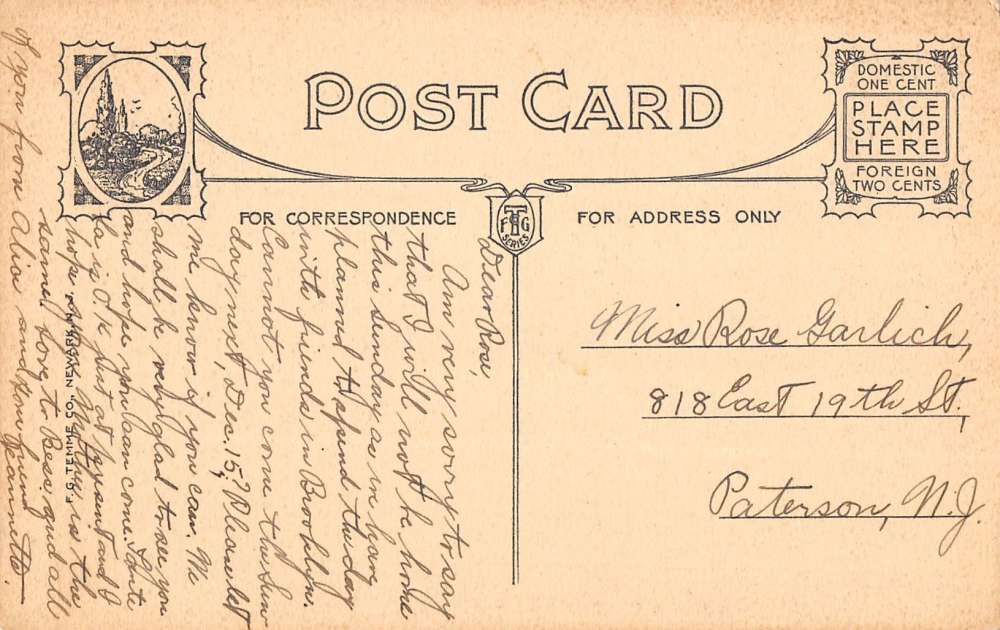 POST CARD
DOMESTIC
ONE CENT
PLACE
STAMP
HERE
FOREIGN
TWO CENTS
FOR CORRESPONDENCE
FOR ADDRESS ONLY
F T G
SERIES
Dear Rose,
Am very sorry to say
that I will not be home
this Sunday as in have
planned to spend the day
with friends in Brooklyn.
Cannot you come the Sun
day next, Dec. 15? Please let
me know if you can. We
shall be very glad to see you
and hope you can come. Tante
is O.K. just at present and I
hope is the
same. Love to Bess, and all
of you from Alice and your friend
Jeannette.
F.G. TEMME CO., NEWARK, N.J.
Miss Rose Garlich,
818 East 19th St.,
Paterson, N.J.